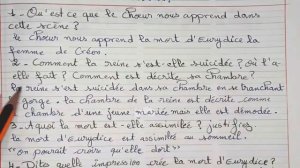 1 - Qu'est ce que le Chœur nous apprend dans
cette scène ?
le Chœur nous apprend la mort d'Eurydice la
femme de Créon.
2 - Comment la reine s'est-elle suicidée ? où l'a-
elle fait ? Comment est décrite sa chambre ?
la reine s'est suicidée dans sa chambre en se tranchant
gorge. la chambre de la reine est décrite comme
chambre d'une jeune mariée mais elle est démodée.
3 - A quoi la mort est-elle assimilée ? justifiez
la mort d'Eurydice est assimilée au sommeil.
"on pourrait croire qu'elle dort"
4 - Dites quelle impression crée la mort d'Eurydice ?